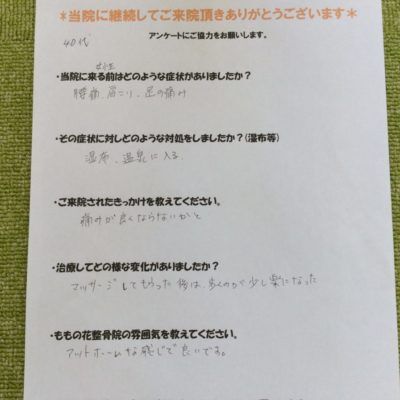 *当院に継続してご来院頂きありがとうございます*
アンケートにご協力をお願いします。
40代
女性
・当院に来る前はどのような症状がありましたか?
腰痛、肩こり、足の痛み
・その症状に対しどのような対処をしましたか?(湿布等)
湿布、温泉に入る
・ご来院されたきっかけを教えてください。
痛みが良くならないかと
・治療してどの様な変化がありましたか?
マッサージしてもらった後は、歩くのが少し楽になった
・ももの花整骨院の雰囲気を教えてください。
アットホームな感じで良いです。